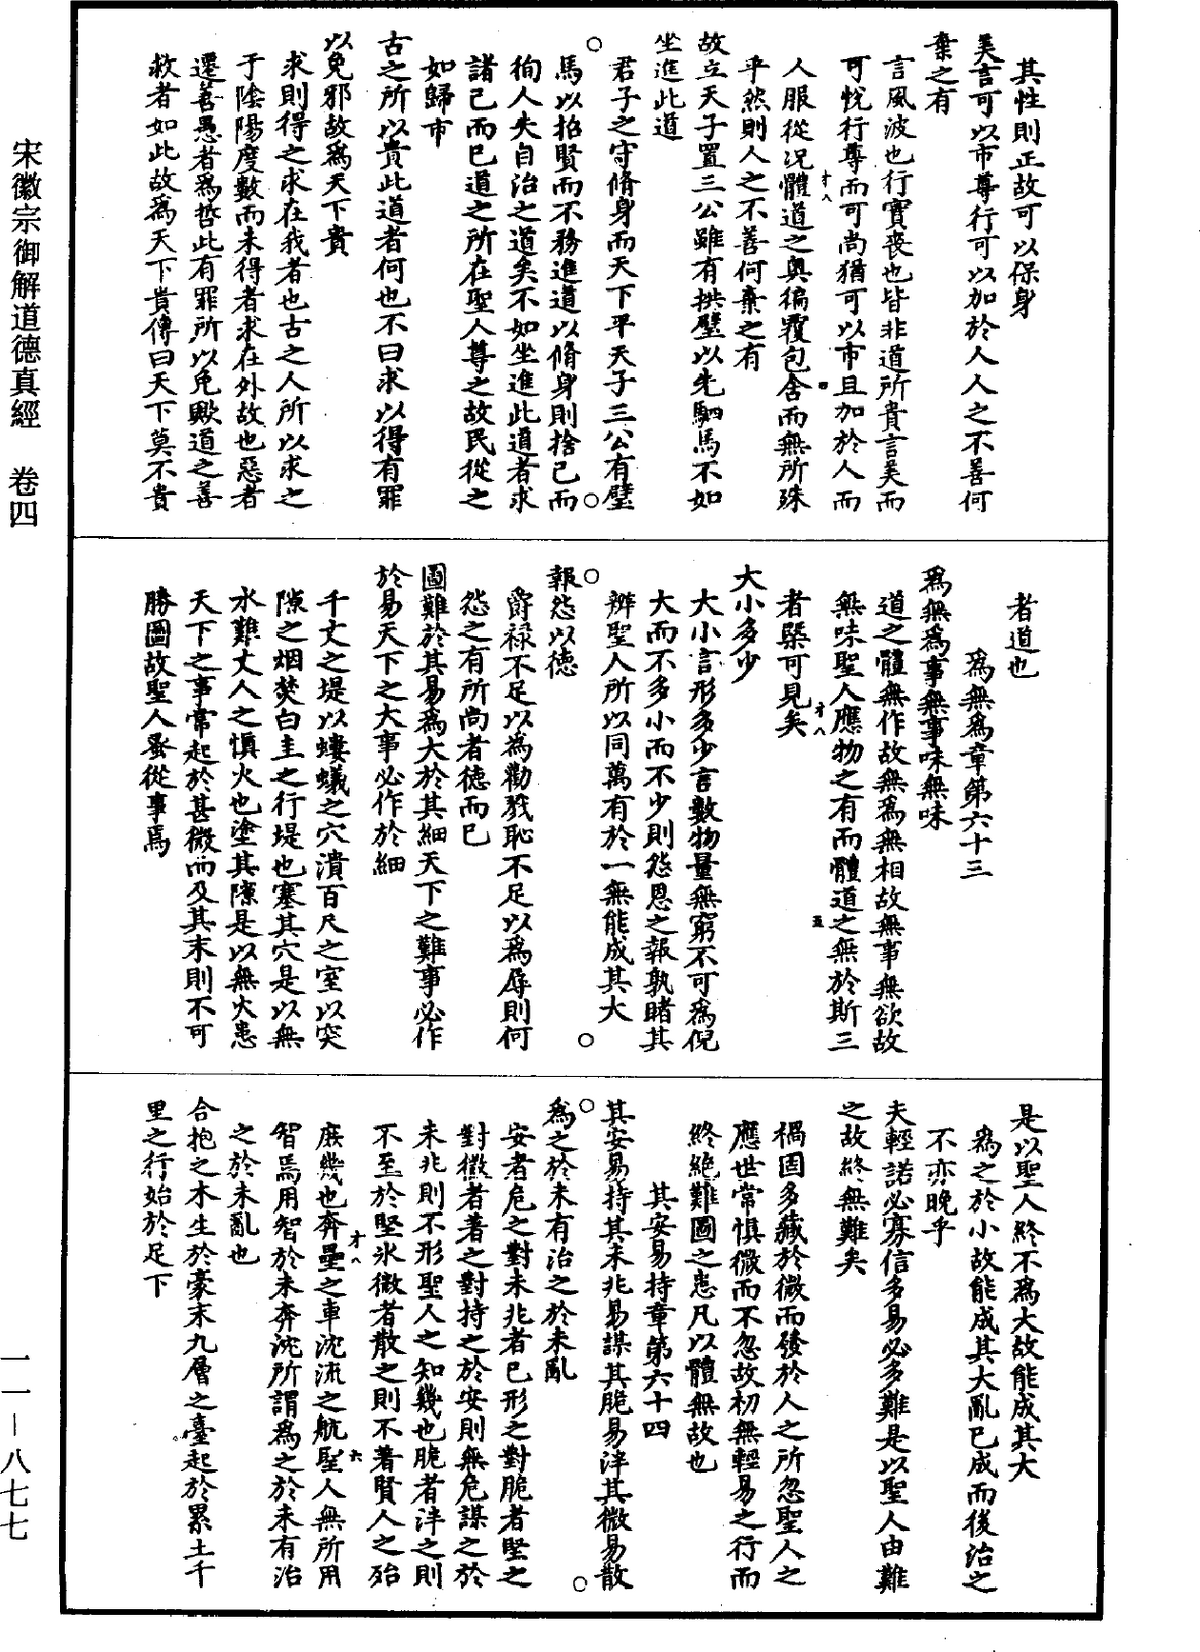 宋徽宗御解道德真經　卷四
一一—八七七
其性則正故可以保身
美言可以市尊行可以加於人人之不善何
棄之有
言風波也行實喪也皆非道所貴言美而
可悅行尊而可尚猶可以市且加於人而
人服從況體道之奧徧覆包含而無所殊
乎然則人之不善何棄之有
故立天子置三公雖有拱璧以先駟馬不如
坐進此道
君子之守脩身而天下平天子三公有璧
馬以招賢而不務進道以脩身則捨己而
徇人失自治之道矣不如坐進此道者求
諸己而已道之所在聖人尊之故民從之
如歸市
古之所以貴此道者何也不曰求以得有罪
以免邪故為天下貴
求則得之求在我者也古之人所以求之
于陰陽度數而未得者求在外故也惡者
遷善愚者為哲此有罪所以免歟道之善
救者如此故為天下貴傳曰天下莫不貴
者道也
為無為章第六十三
為無為事無事味無味
道之體無作故無為無相故無事無欲故
無味聖人應物之有而體道之無於斯三
者槩可見矣
大小多少
大小言形多少言數物量無窮不可為倪
大而不多小而不少則怨恩之報孰睹其
辨聖人所以同萬有於一無能成其大
報怨以德
爵祿不足以為勸戮恥不足以為辱則何
怨之有所尚者德而已
圖難於其易為大於其細天下之難事必作
於易天下之大事必作於細
千丈之堤以螻蟻之穴潰百尺之室以突
隙之烟焚白圭之行堤也塞其穴是以無
水難丈人之慎火也塗其隙是以無火患
天下之事常起於甚微而及其末則不可
勝圖故聖人蚤從事焉
是以聖人終不為大故能成其大
為之於小故能成其大亂已成而後治之
不亦晚乎
夫輕諾必寡信多易必多難是以聖人由難
之故終無難矣
禍固多藏於微而發於人之所忽聖人之
應世常慎微而不忽故初無輕易之行而
終絕難圖之患凡以體無故也
其安易持章第六十四
其安易持其未兆易謀其脆易泮其微易散
為之於未有治之於未亂
安者危之對未兆者已形之對脆者堅之
對微者著之對持之於安則無危謀之於
未兆則不形聖人之知幾也脆者泮之則
不至於堅氷微者散之則不著賢人之殆
庶幾也奔壘之車沈流之航聖人無所用
智焉用智於未奔沈所謂為之於未有治
之於未亂也
合抱之木生於豪末九層之臺起於累土千
里之行始於足下